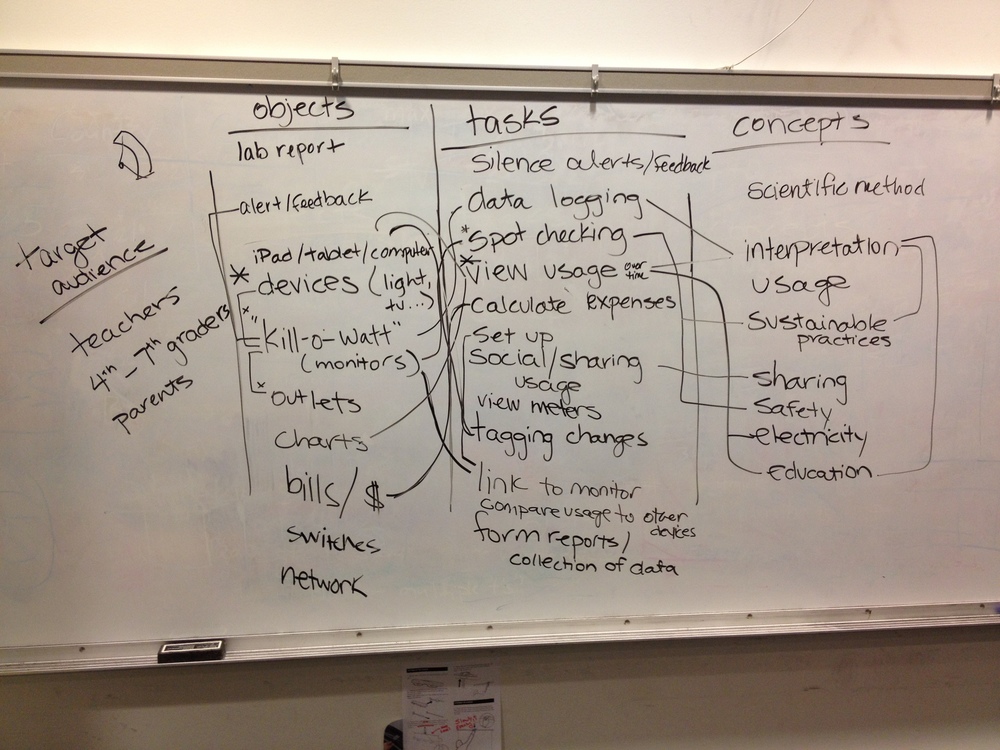 target
audience
teachers
4th - 7th graders
parents
objects
lab report
alert/feedback
iPad/tablet/computer
* devices (light,
tv...)
* "Kill-o-Watt"
(monitors)
* outlets
charts
bills/$
switches
network
tasks
Silence alerts/feedback
data logging
* spot checking
* view usage over time
calculate expenses
Set up
Social/sharing
usage
view meters
tagging changes
link to monitor
compare usage to other
devices
form reports/
collection of data
concepts
Scientific method
interpretation
usage
Sustainable
practices
sharing
Safety
electricity
education